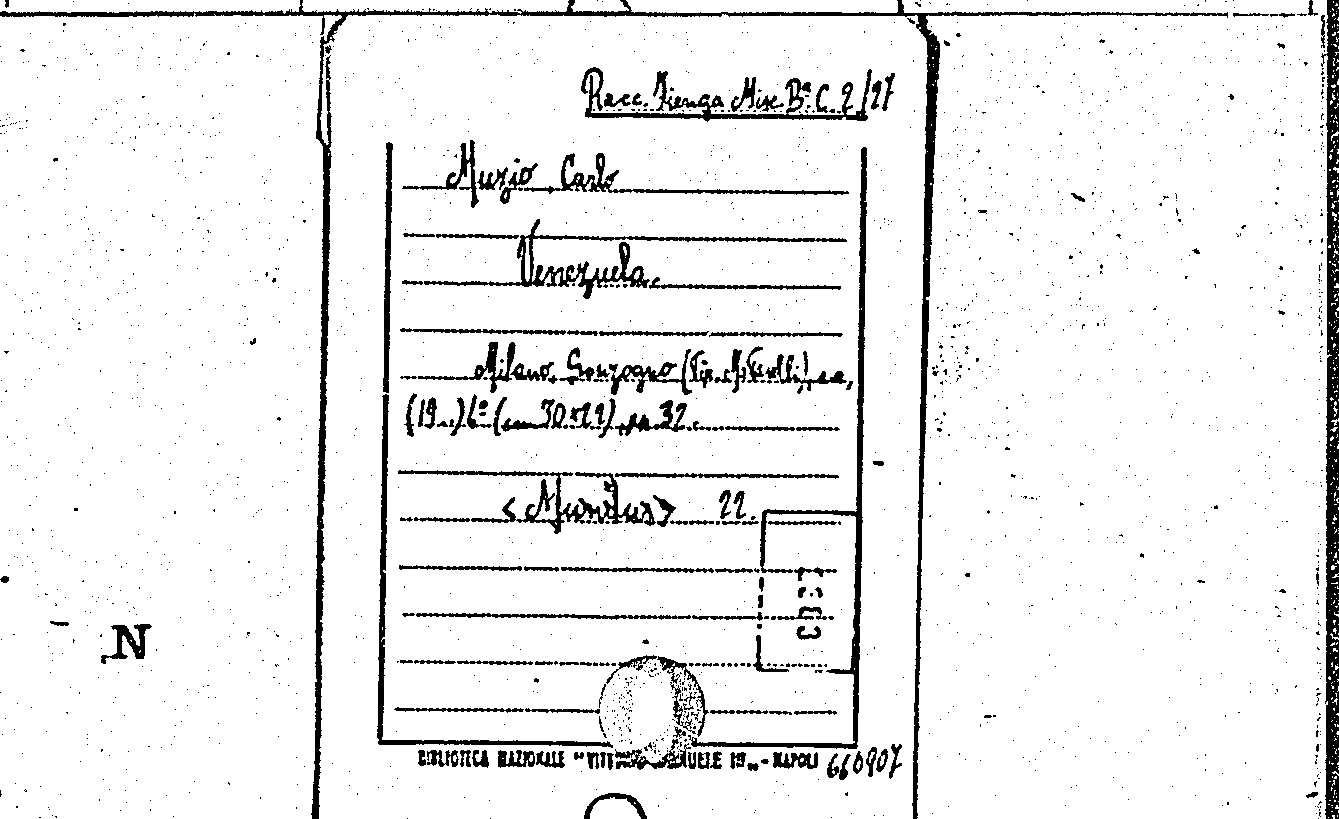 Racc. Fienga Misc. Bª C. 2/27
Muzio, Carlo
Venezuela.
Milano, Sonzogno (Tip. A.
(19..) 6º (cm 30×22), pp. 32.
<Mundus> 22.
N
BIBLIOTECA NAZIONALE "VITT EMANUELE III" - NAPOLI 660907